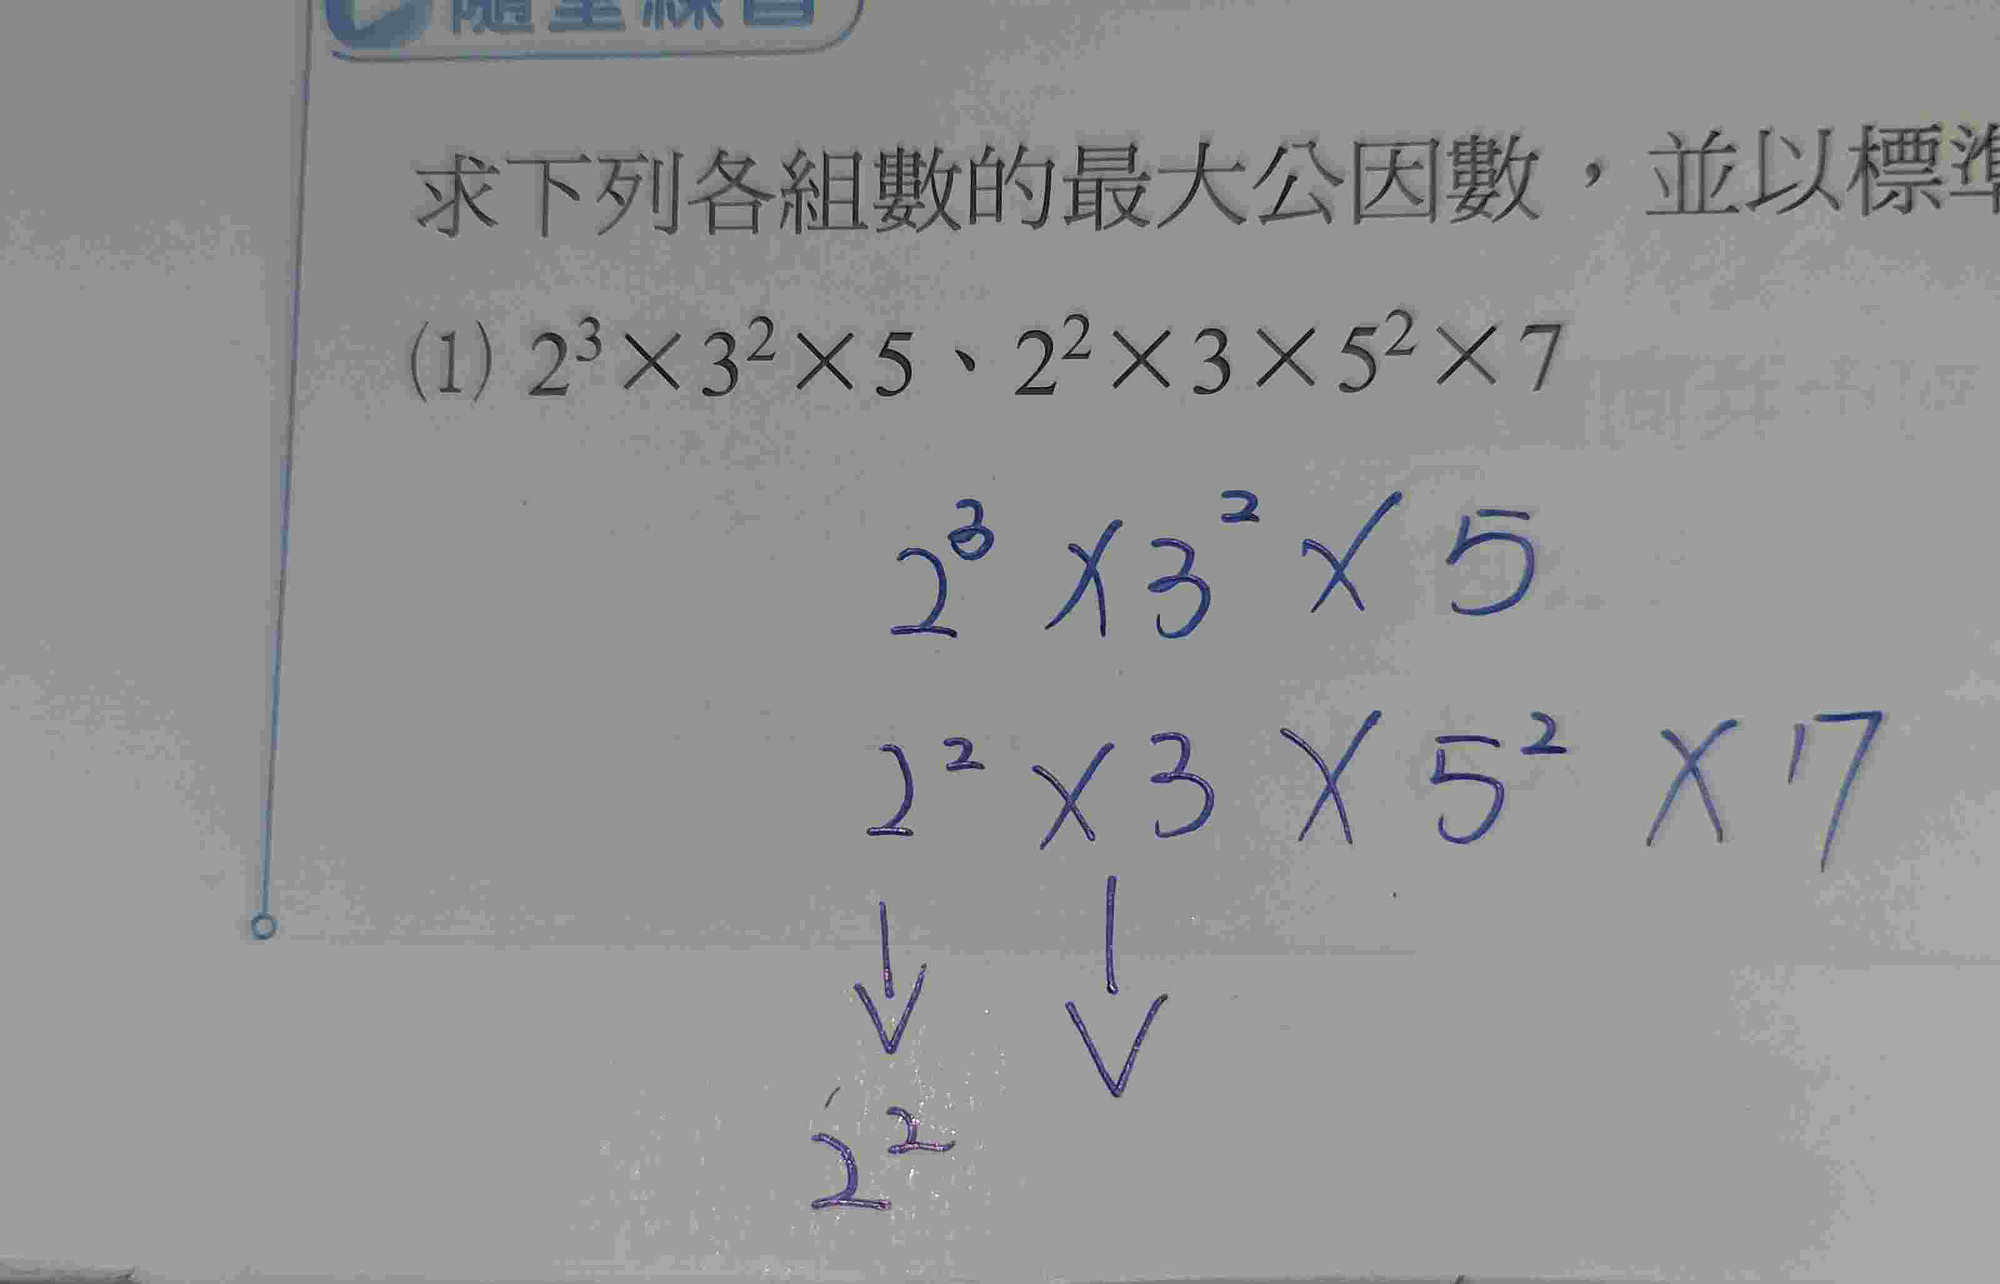 隨堂練習
求下列各組數的最大公因數，並以標準
(1) 2³×3²×5、2²×3×5²×7
2³ × 3² × 5
2² × 3 × 5² × 7
2²